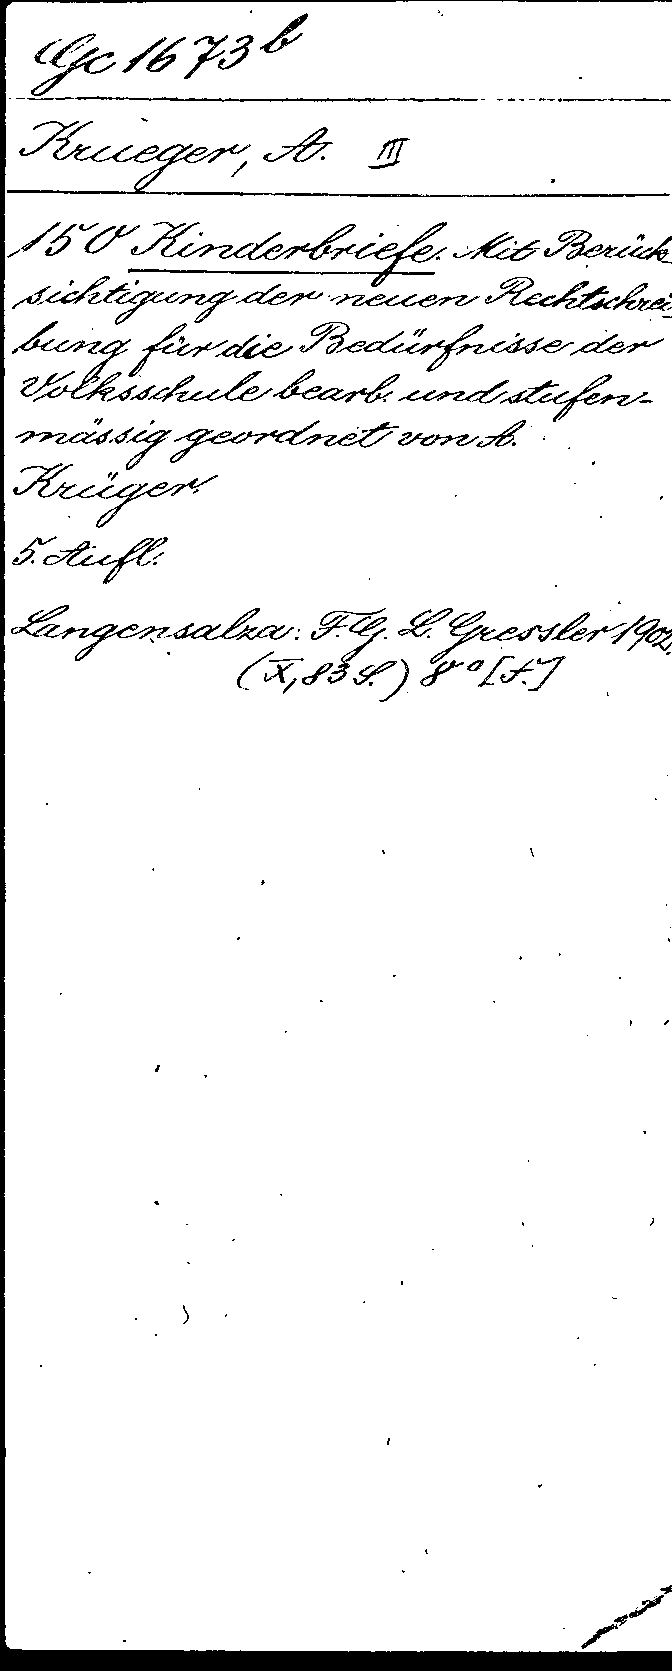 Gc 1673 b
Krueger, A. III
150 Kinderbriefe. Mit Berück
sichtigung der neuen Rechtschrei-
bung für die Bedürfnisse der
Volksschule bearb. und stufen-
mässig geordnet von A.
Krüger.
5. Aufl.
Langensalza: F. G. L. Gressler 1902.
(X, 83 S.) 8° [f.]